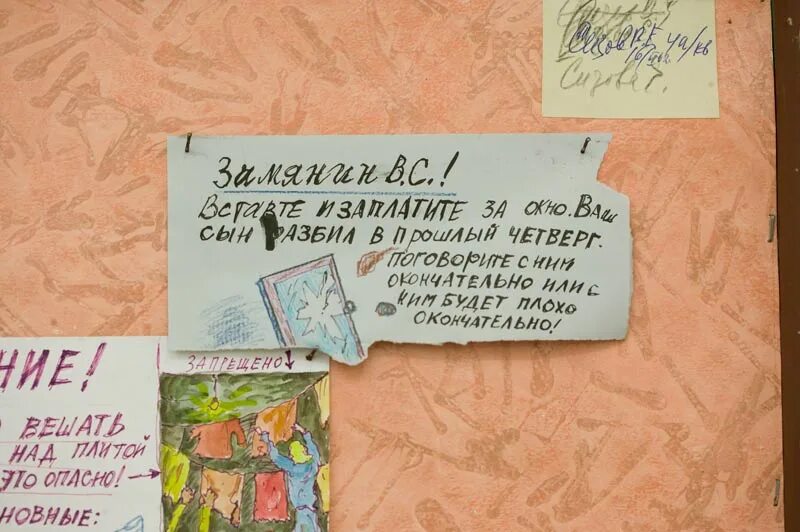 Сизова Г.
Замянин В.С.!
Вставте и заплатите за окно. Ваш
сын разбил в прошлый четверг.
Поговорите с ним
окончательно или с
ним будет плохо
окончательно!
НИЕ!
Запрещено
вешать
над плитой
это опасно!
новные: